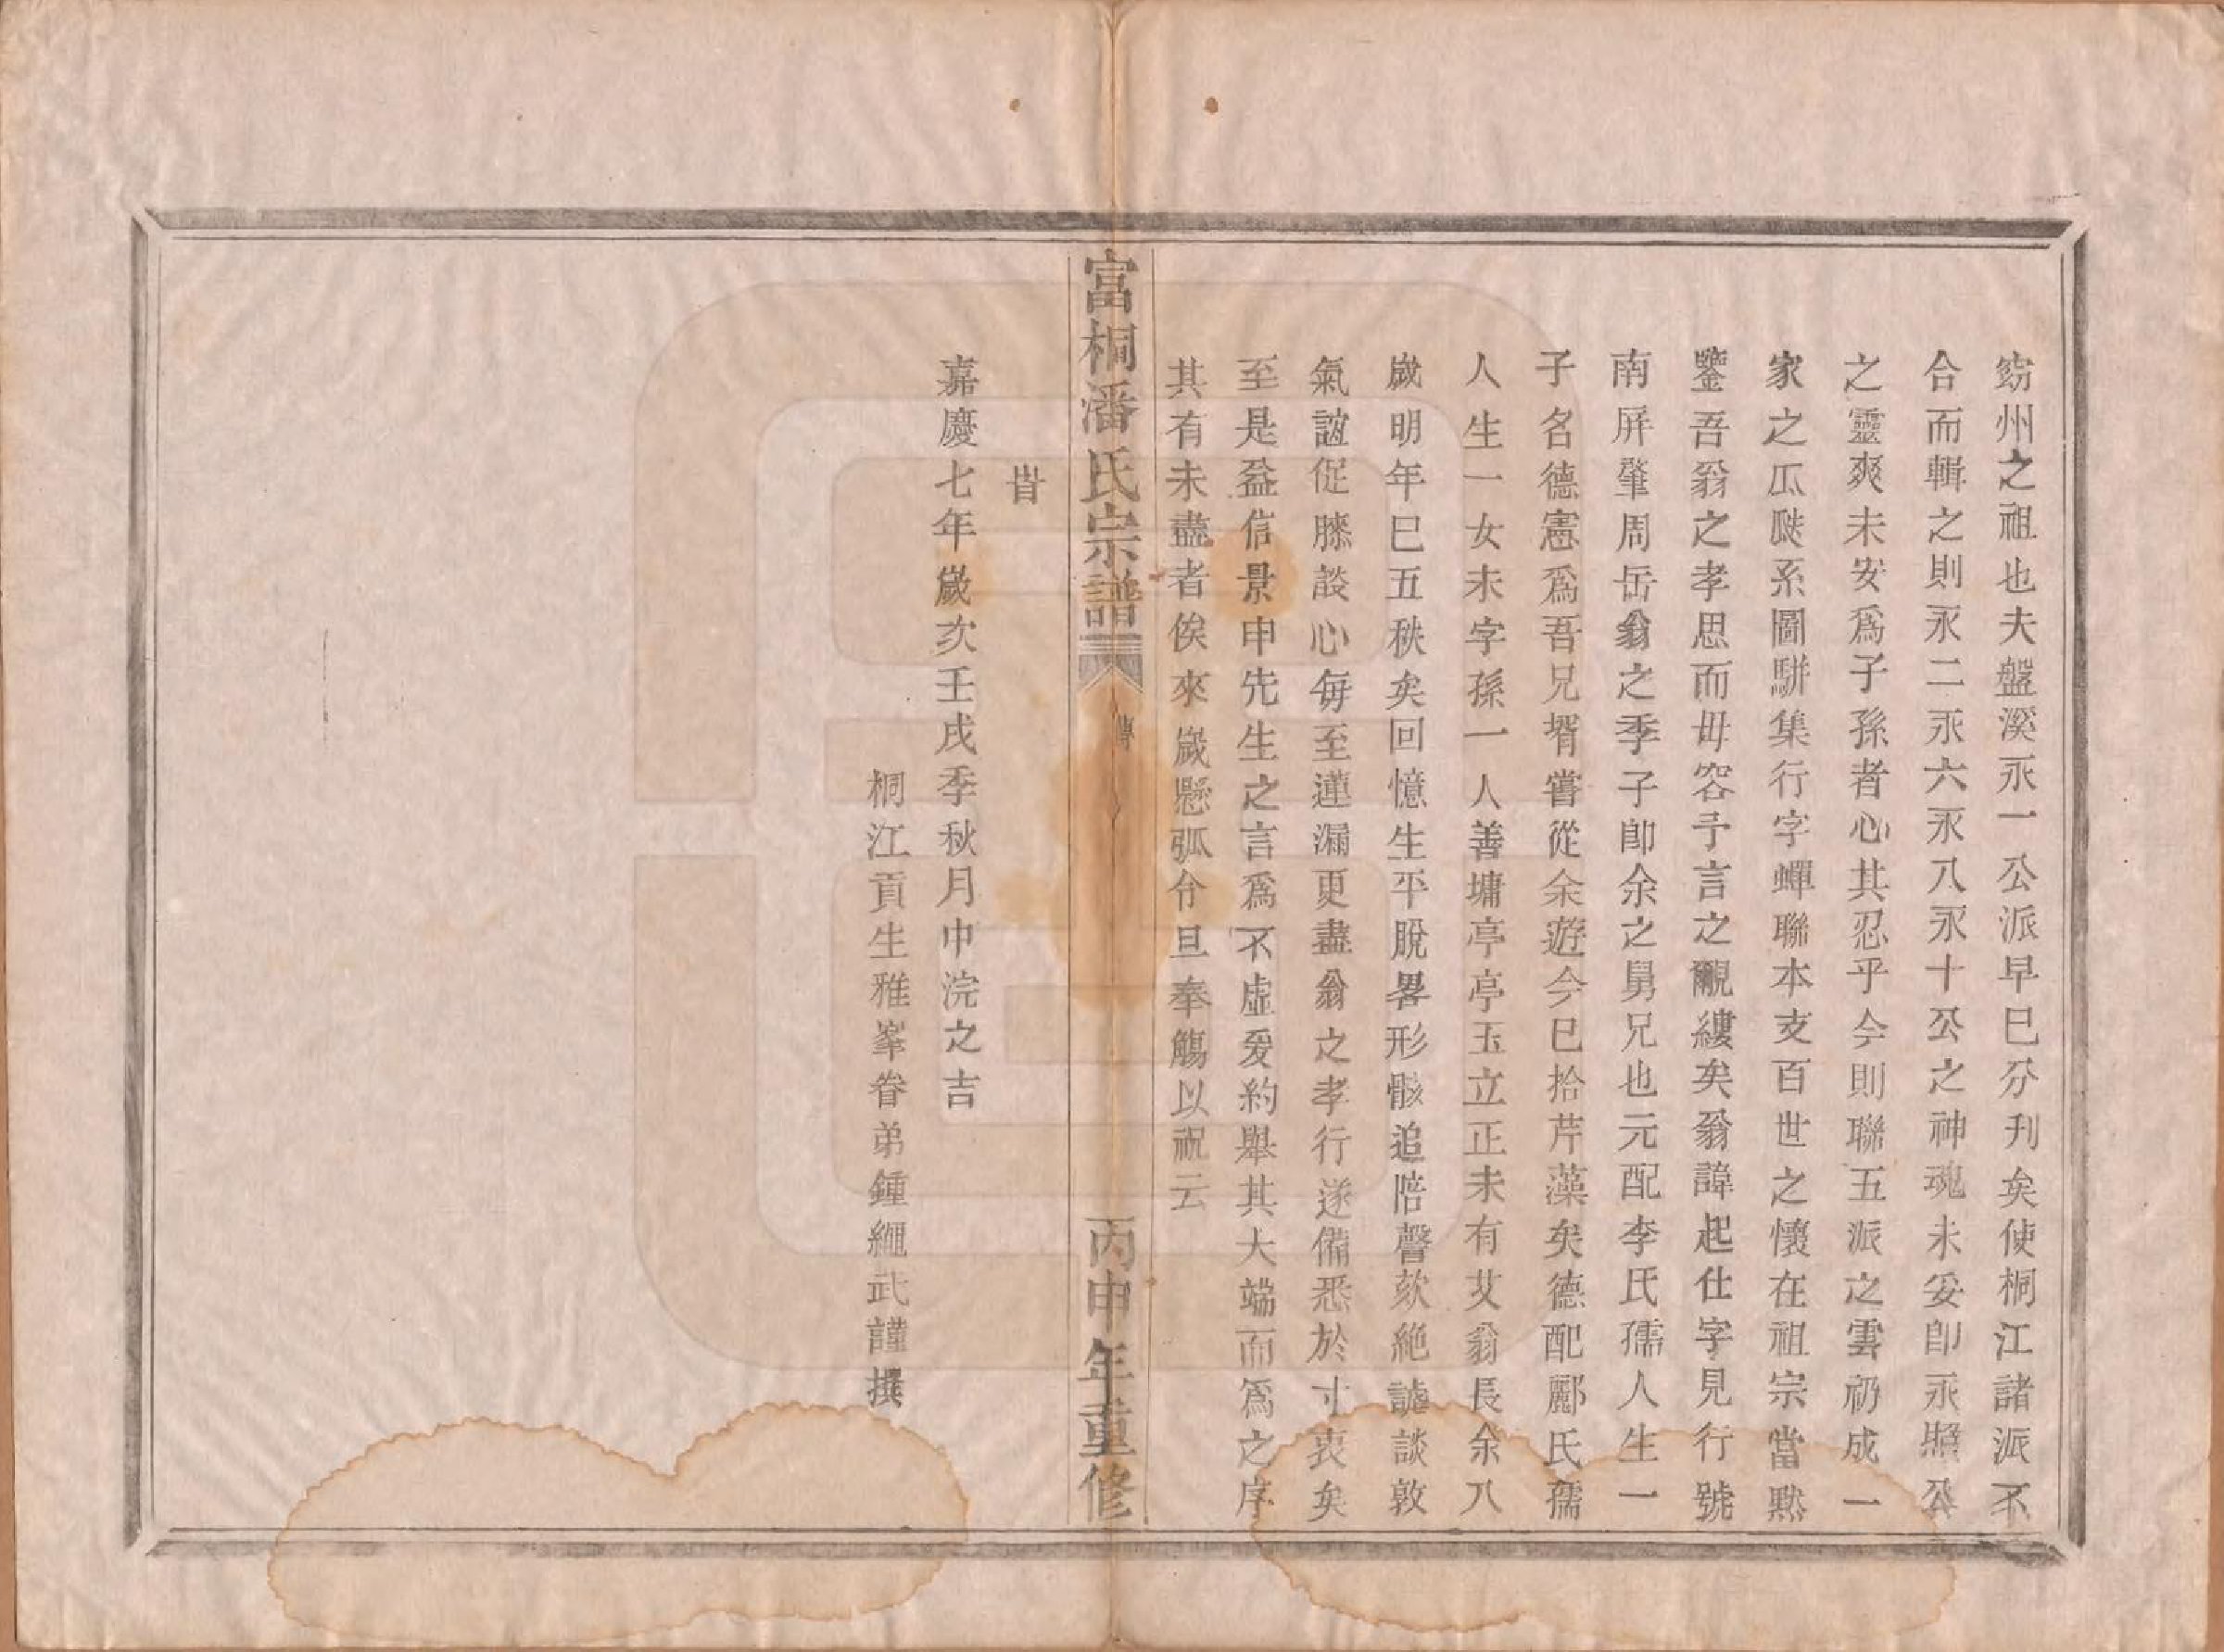 窈州之祖也夫盤溪永一公派早巳分刋矣使桐江諸派不
合而輯之則永二永六永八永十公之神魂未妥卽永照公
之靈爽未安爲子孫者心其忍乎今則聯五派之雲礽成一
家之瓜瓞系圖騈集行字蟬聯本支百世之懷在祖宗當黙
鑒吾翁之孝思而毋容予言之覼縷矣翁諱起仕字見行號
南屏肇周岳翁之季子卽余之舅兄也元配李氏孺人生一
子名德憲爲吾兄壻嘗從余遊今巳拾芹藻矣德配酈氏孺
人生一女未字孫一人善墉亭亭玉立正未有艾翁長余八
歲明年巳五秩矣回憶生平脫畧形骸追陪謦欬絶謔談敦
氣誼促膝談心每至蓮漏更盡翁之孝行遂備悉於寸衷矣
至是益信景申先生之言爲不虛爰約舉其大端而爲之序
其有未盡者俟來歲懸弧令旦奉觴以祝云
富桐潘氏宗譜
傳
丙申年重修
旹
嘉慶七年歲次壬戌季秋月中浣之吉
桐江貢生雅峯眷弟鍾繩武謹撰